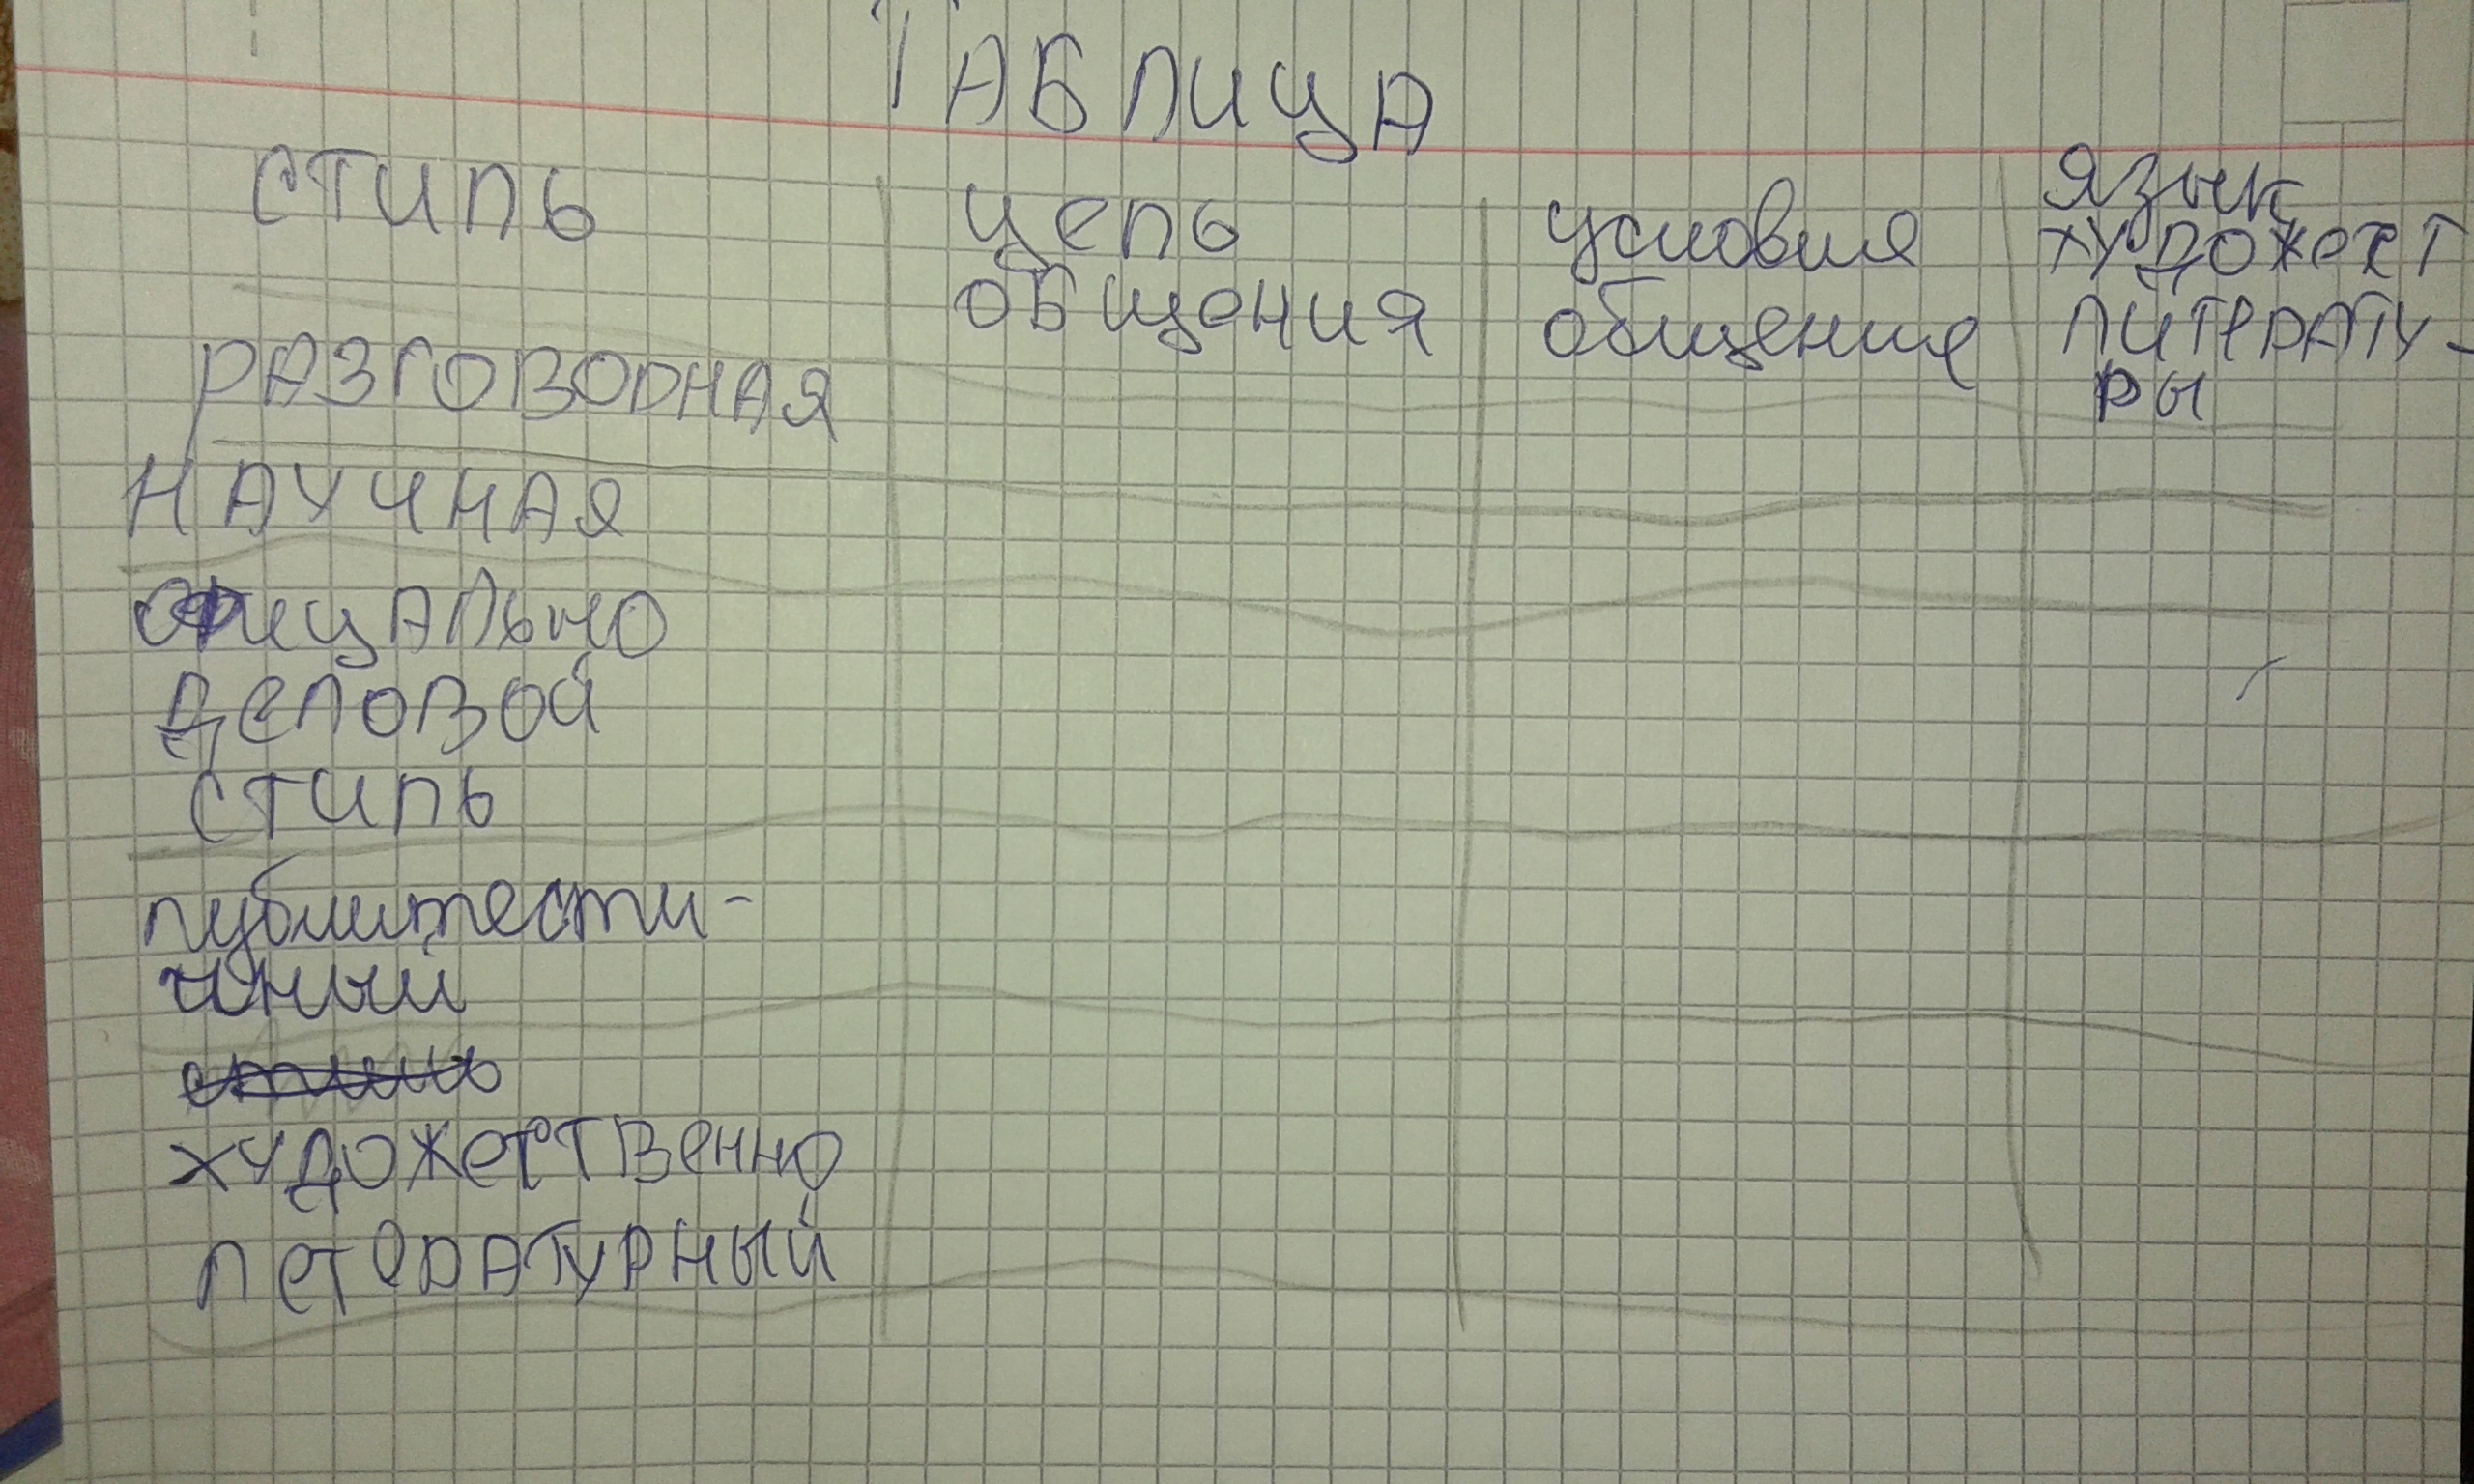 ТАБЛИЦА
СТИЛЬ
цель
общения
условия
общение
язык
художест
литерату-
ры
РАЗГОВОРНАЯ
НАУЧНАЯ
офицально
деловой
стиль
публитести-
чный
стиль
художественно
летературный